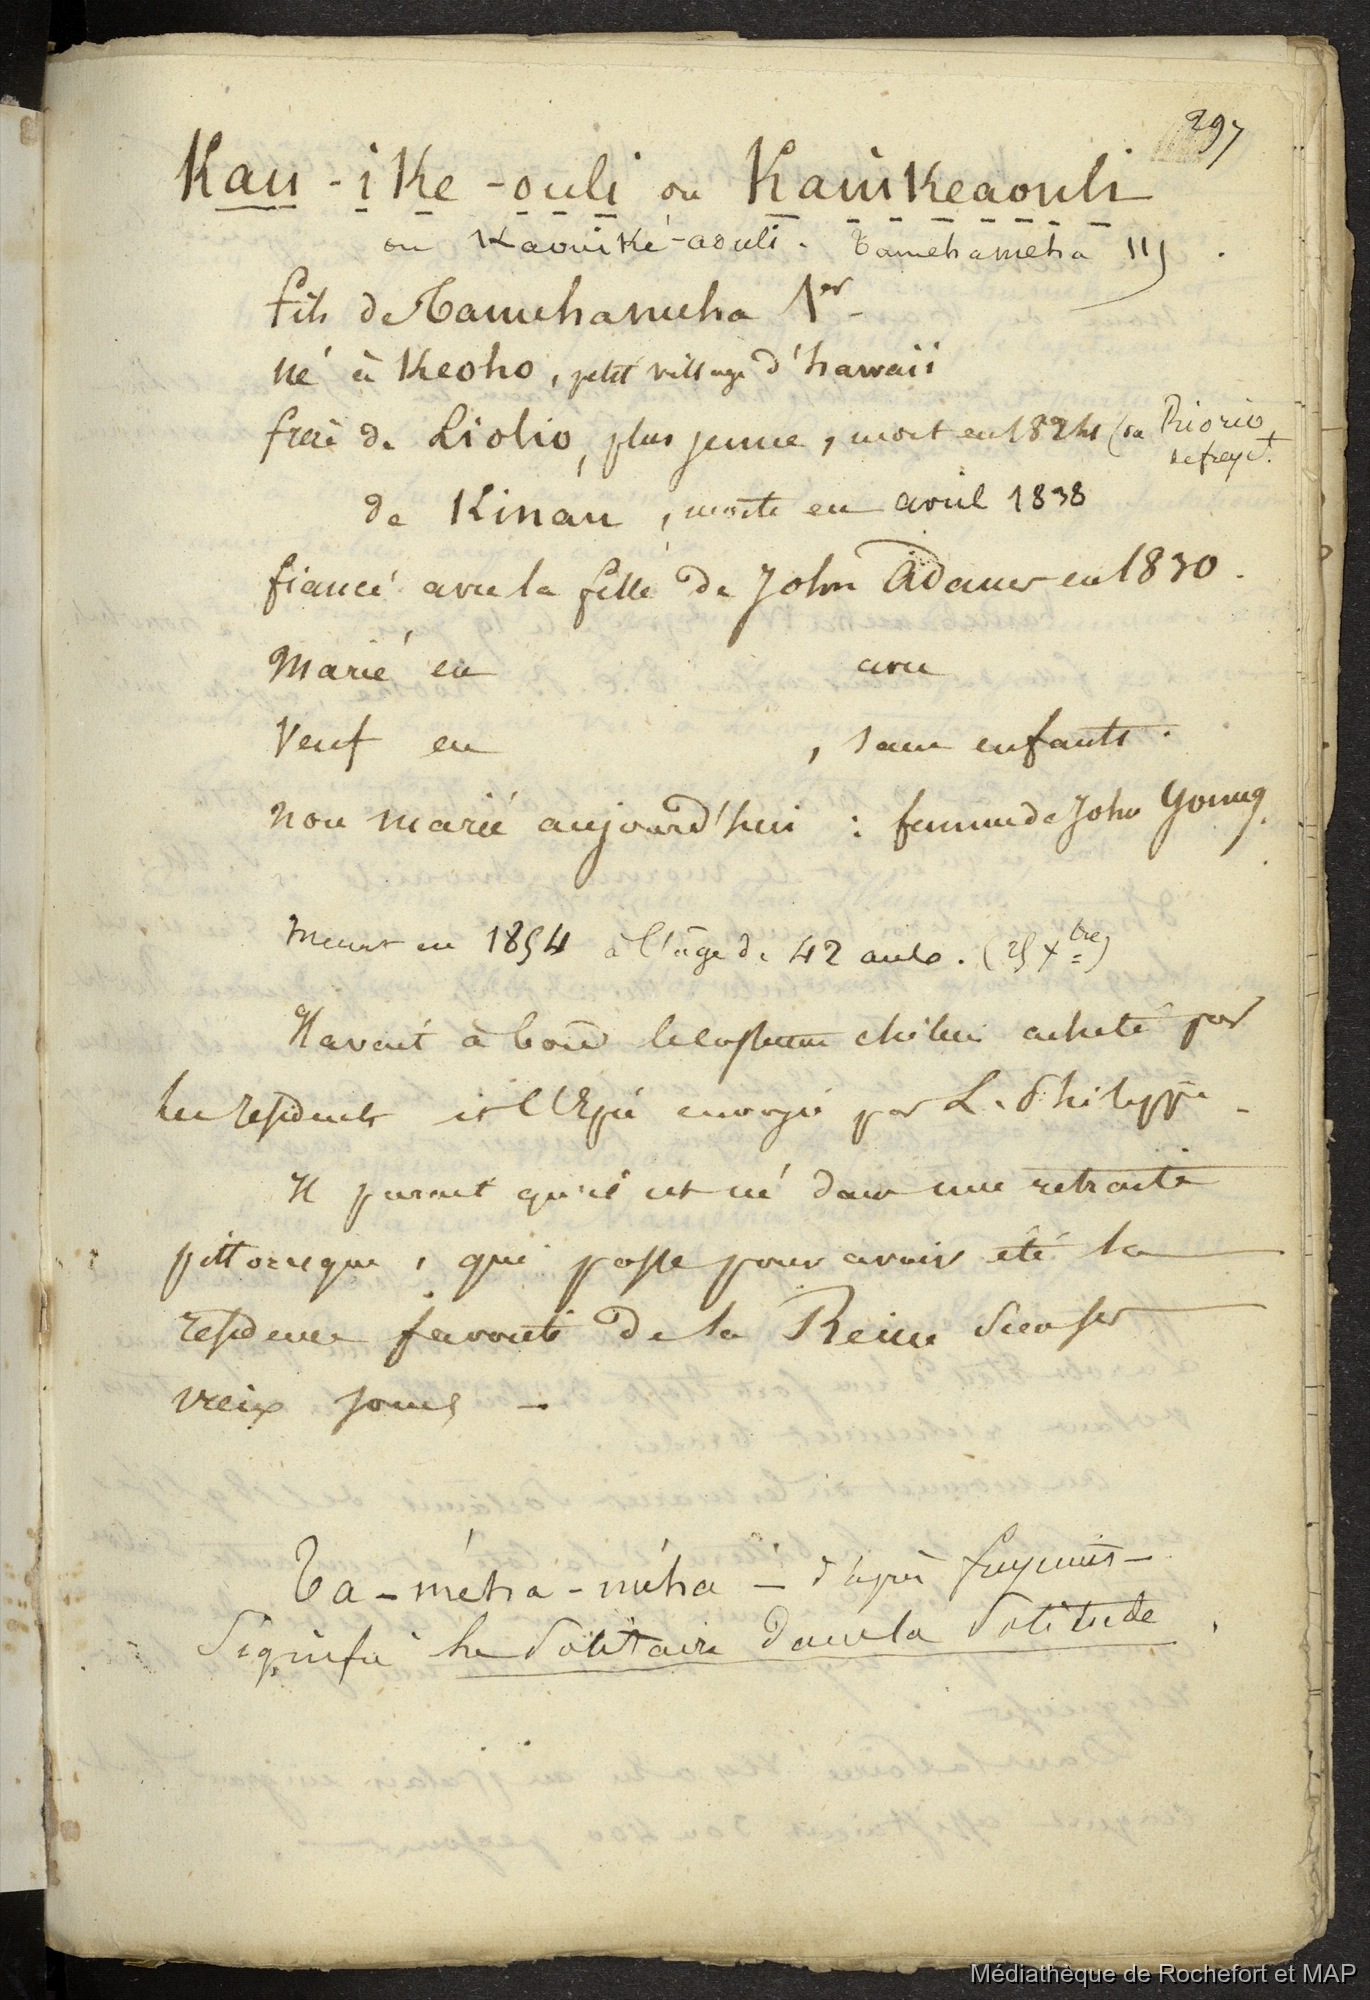 297
Kau - ike - ouli ou Kauikeaouli
ou Kaouiké-aouli. Tamehameha III.
fils de Tamehameha 1er
né à Keoho, petit village d'hawaii
frère de Liolio, plus jeune, mort en 1824 (ou Riorio
de freyct.
de Kinau, morte en avril 1838
fiancé avec la fille de John Adams en 1830.
Marié en avec
Veuf en , sans enfants.
non marié aujourd'hui : femme de John Young.
Meurt en 1854 à l'âge de 42 ans. (15 Xbre)
Il avait à bord le costume chilien acheté par
les résidents et l'Epée envoyée par L. Philippe.
Il parait qu'il est né dans une retraite
pittoresque, qui passe pour avoir été la
résidence favorite de la Reine dans ses
vieux jours -
Ta-méha-méha - d'après
Signifie le Solitaire dans la Solitude.
Médiathèque de Rochefort et MAP